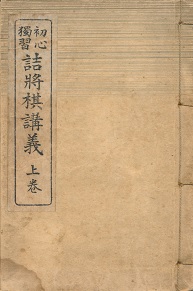 初心
獨習
詰將棋講義
上卷